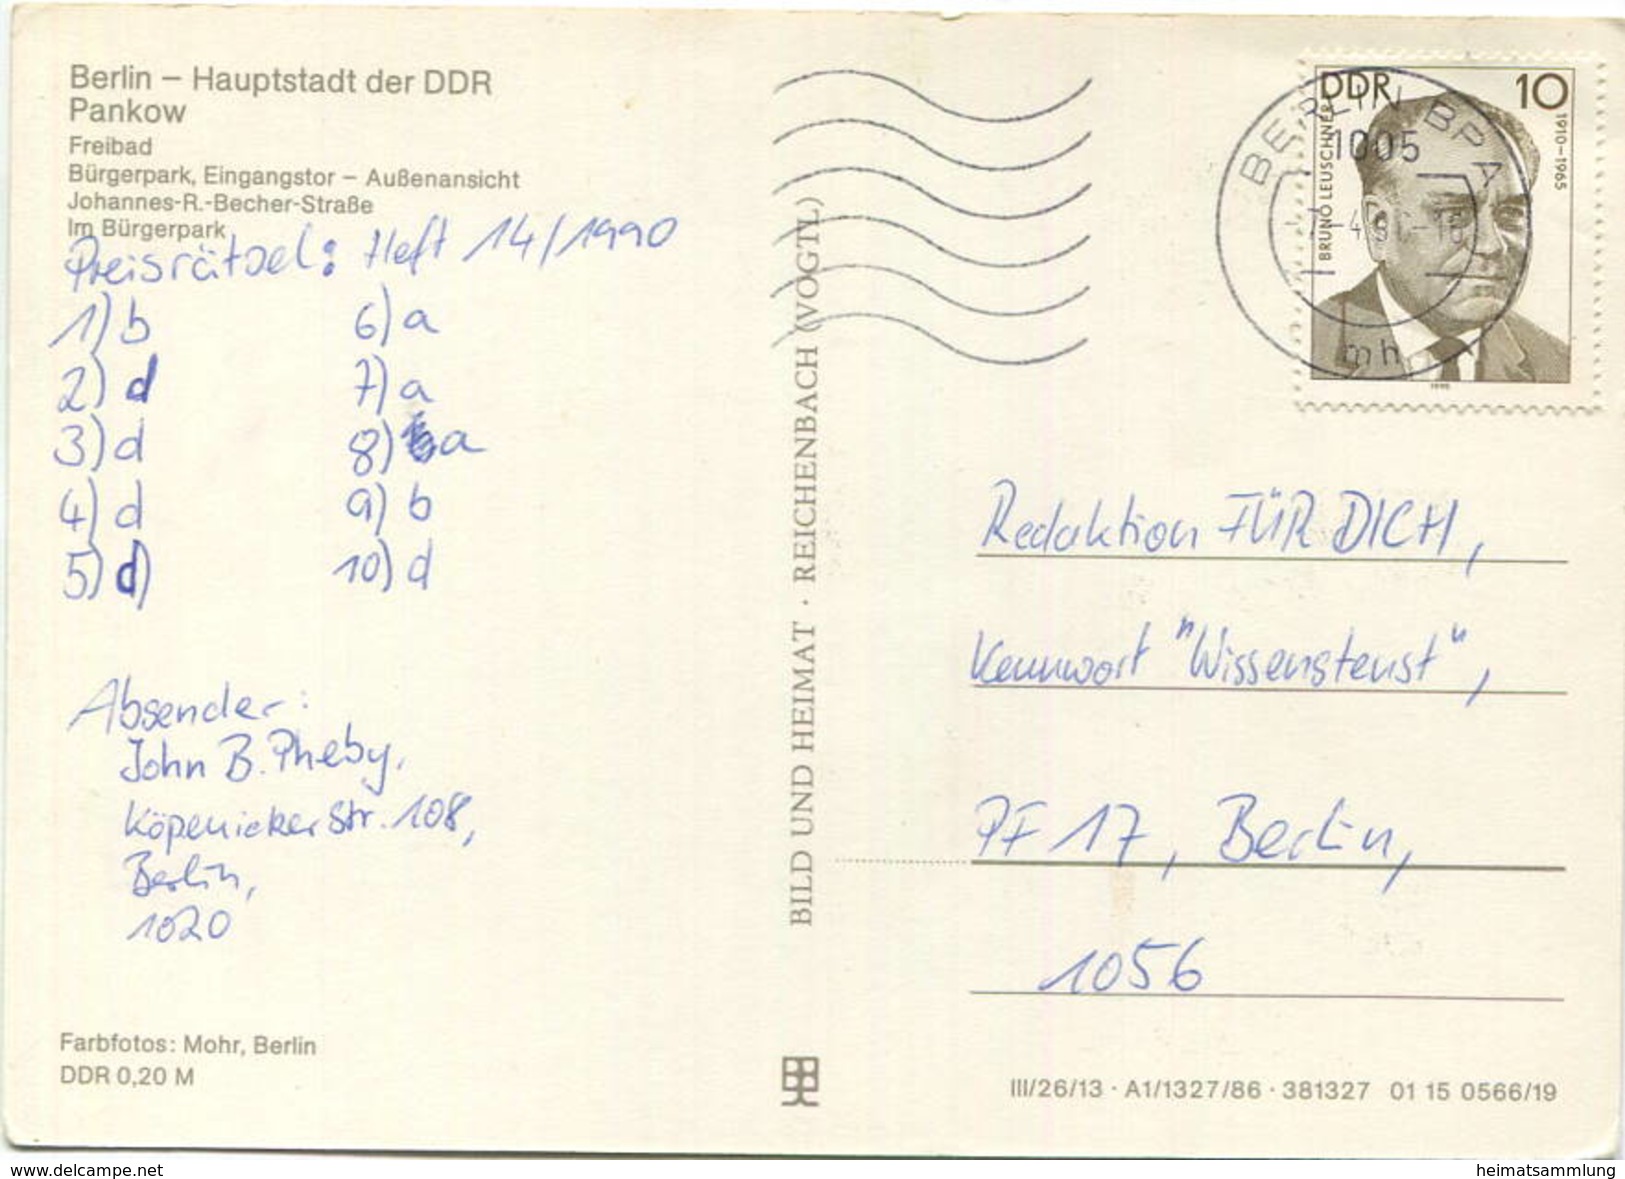 Berlin – Hauptstadt der DDR
Pankow
Freibad
Bürgerpark, Eingangstor – Außenansicht
Johannes-R.-Becher-Straße
Im Bürgerpark
Preisrätsel: Heft 14/1990
1) b
2) d
3) d
4) d
5) d)
6) a
7) a
8) a
9) b
10) d
Absender:
John B. Pheby,
Köpenicker Str. 108,
Berlin,
1020
Farbfotos: Mohr, Berlin
DDR 0,20 M
BILD UND HEIMAT · REICHENBACH (VOGTL)
DDR 10
BRUNO LEUSCHNER
1910–1965
1990
BERLIN BPA
1005
mh
Redaktion FÜR DICH,
Kennwort "Wissenstest",
PF 17, Berlin,
1056
III/26/13 · A1/1327/86 · 381327 01 15 0566/19
www.delcampe.net
heimatsammlung